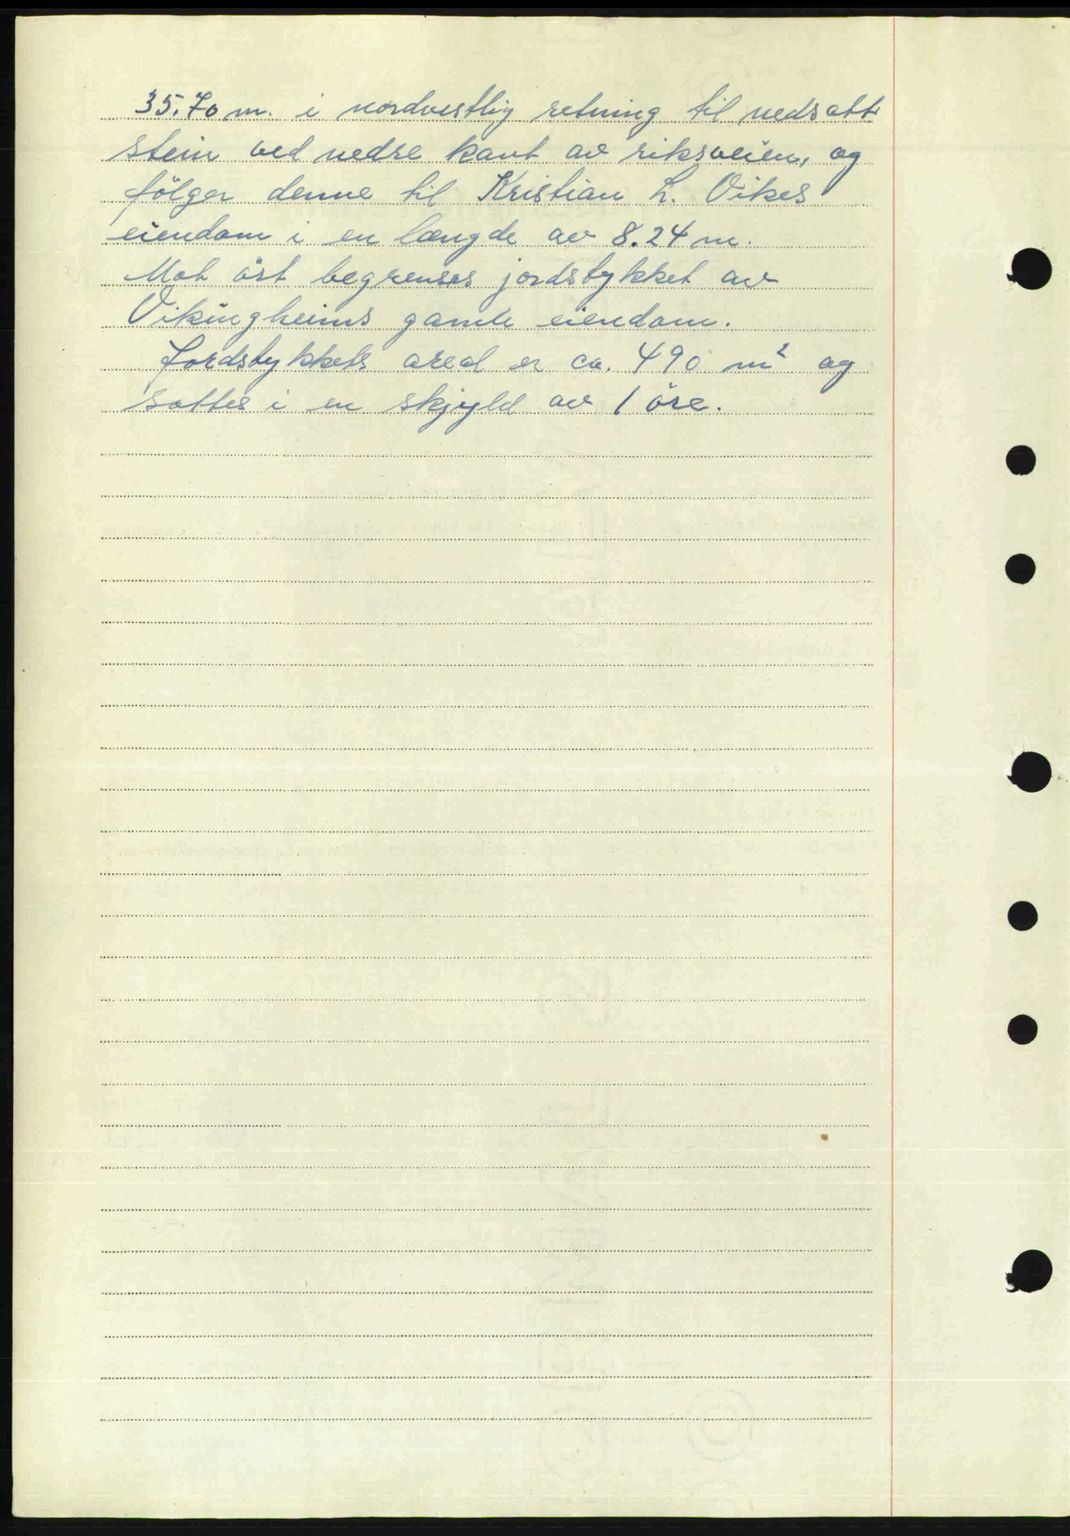 35.70 m. i nordvestlig retning til nedsatt
stein ved nedre kant av riksveien, og
følger denne til Kristian L. Vikes
eiendom i en længde av 8.24 m.
Mot öst begrenses jordstykket av
Vikingheims gamle eiendom.
Jordstykkets areal er ca. 490 m² og
sattes i en skjyld av 1 öre.